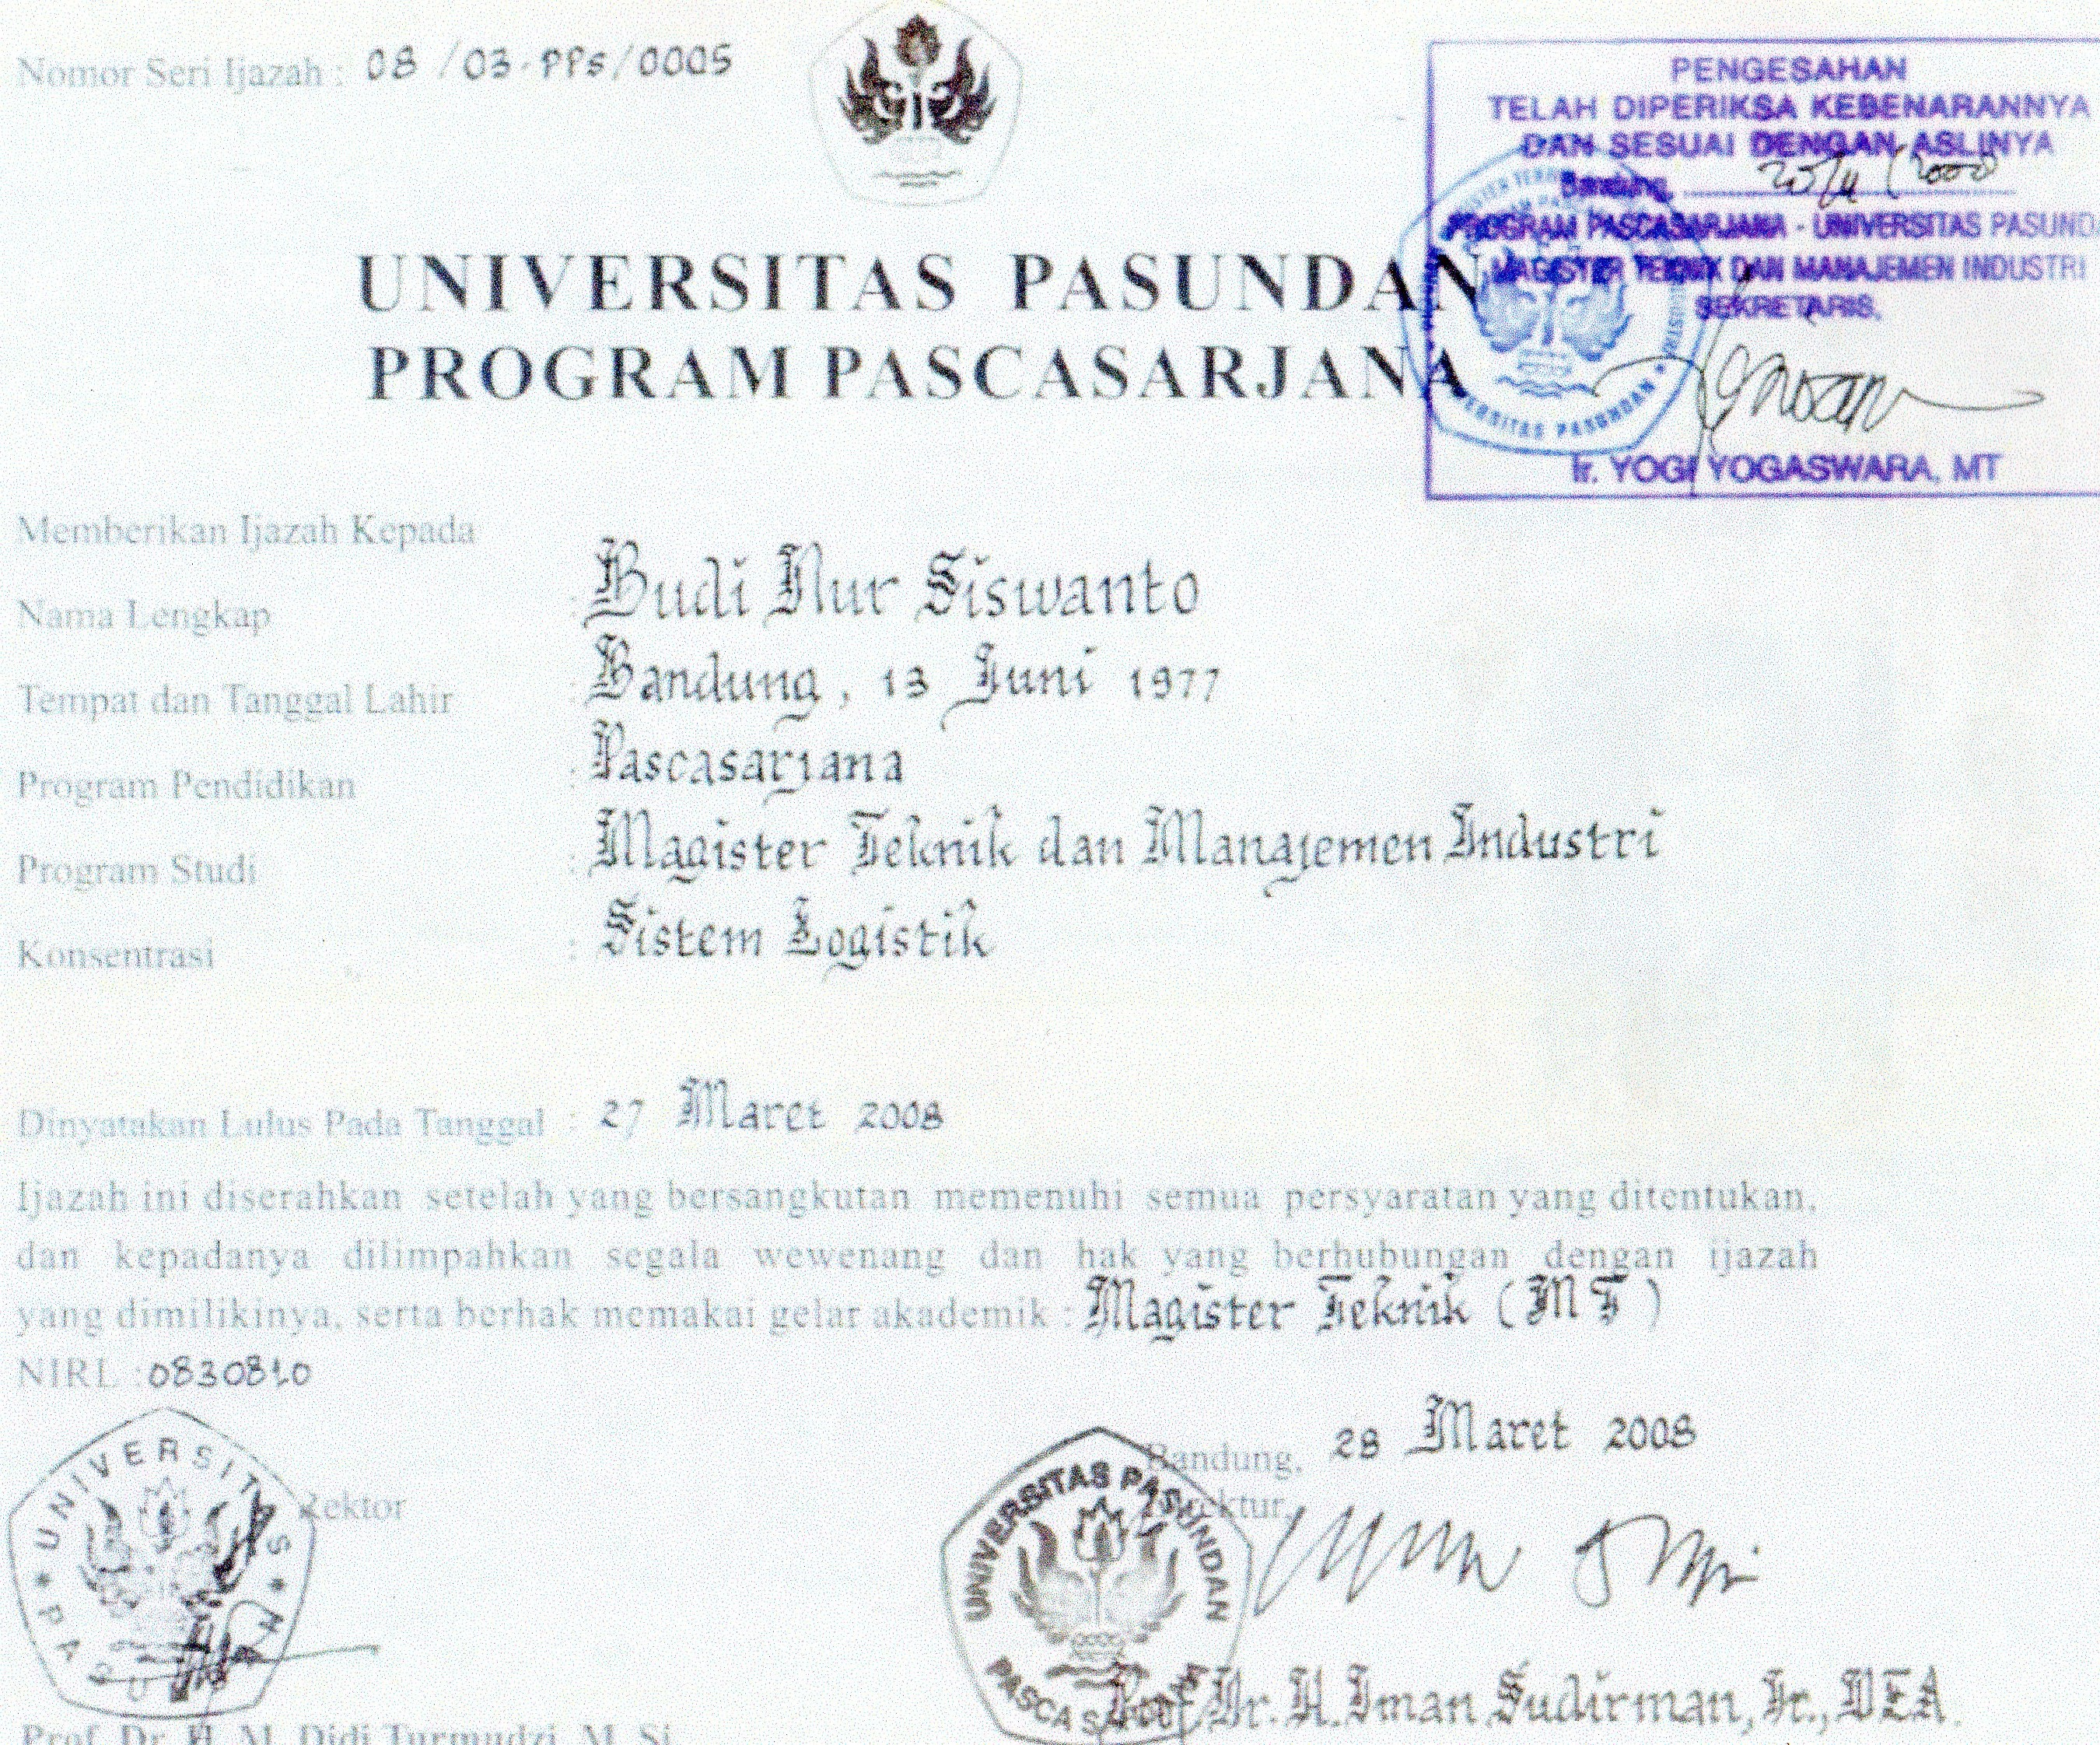 Nomor Seri Ijazah : 08 /03.PPs/0005
PENGESAHAN
TELAH DIPERIKSA KEBENARANNYA
DAN SESUAI DENGAN ASLINYA
Bandung,
PROGRAM PASCASARJANA - UNIVERSITAS PASUNDA
MAGISTER TEKNIK DAN MANAJEMEN INDUSTRI
SEKRETARIS,
Ir. YOGI YOGASWARA, MT
UNIVERSITAS PASUNDAN
PROGRAM PASCASARJANA
Memberikan Ijazah Kepada
Nama Lengkap : Budi Nur Siswanto
Tempat dan Tanggal Lahir : Bandung, 13 Juni 1977
Program Pendidikan : Pascasarjana
Program Studi : Magister Teknik dan Manajemen Industri
Konsentrasi : Sistem Logistik
Dinyatakan Lulus Pada Tanggal : 27 Maret 2008
Ijazah ini diserahkan setelah yang bersangkutan memenuhi semua persyaratan yang ditentukan,
dan kepadanya dilimpahkan segala wewenang dan hak yang berhubungan dengan ijazah
yang dimilikinya, serta berhak memakai gelar akademik : Magister Teknik (MT)
NIRL :
Bandung, 28 Maret 2008
Rektor
Direktur,
UNIVERSITAS
UNIVERSITAS PASUNDAN
Prof. Dr. H. M. Didi Turmudzi, M. Si
Prof. Dr. H. Iman Sudirman, Ir., DEA.